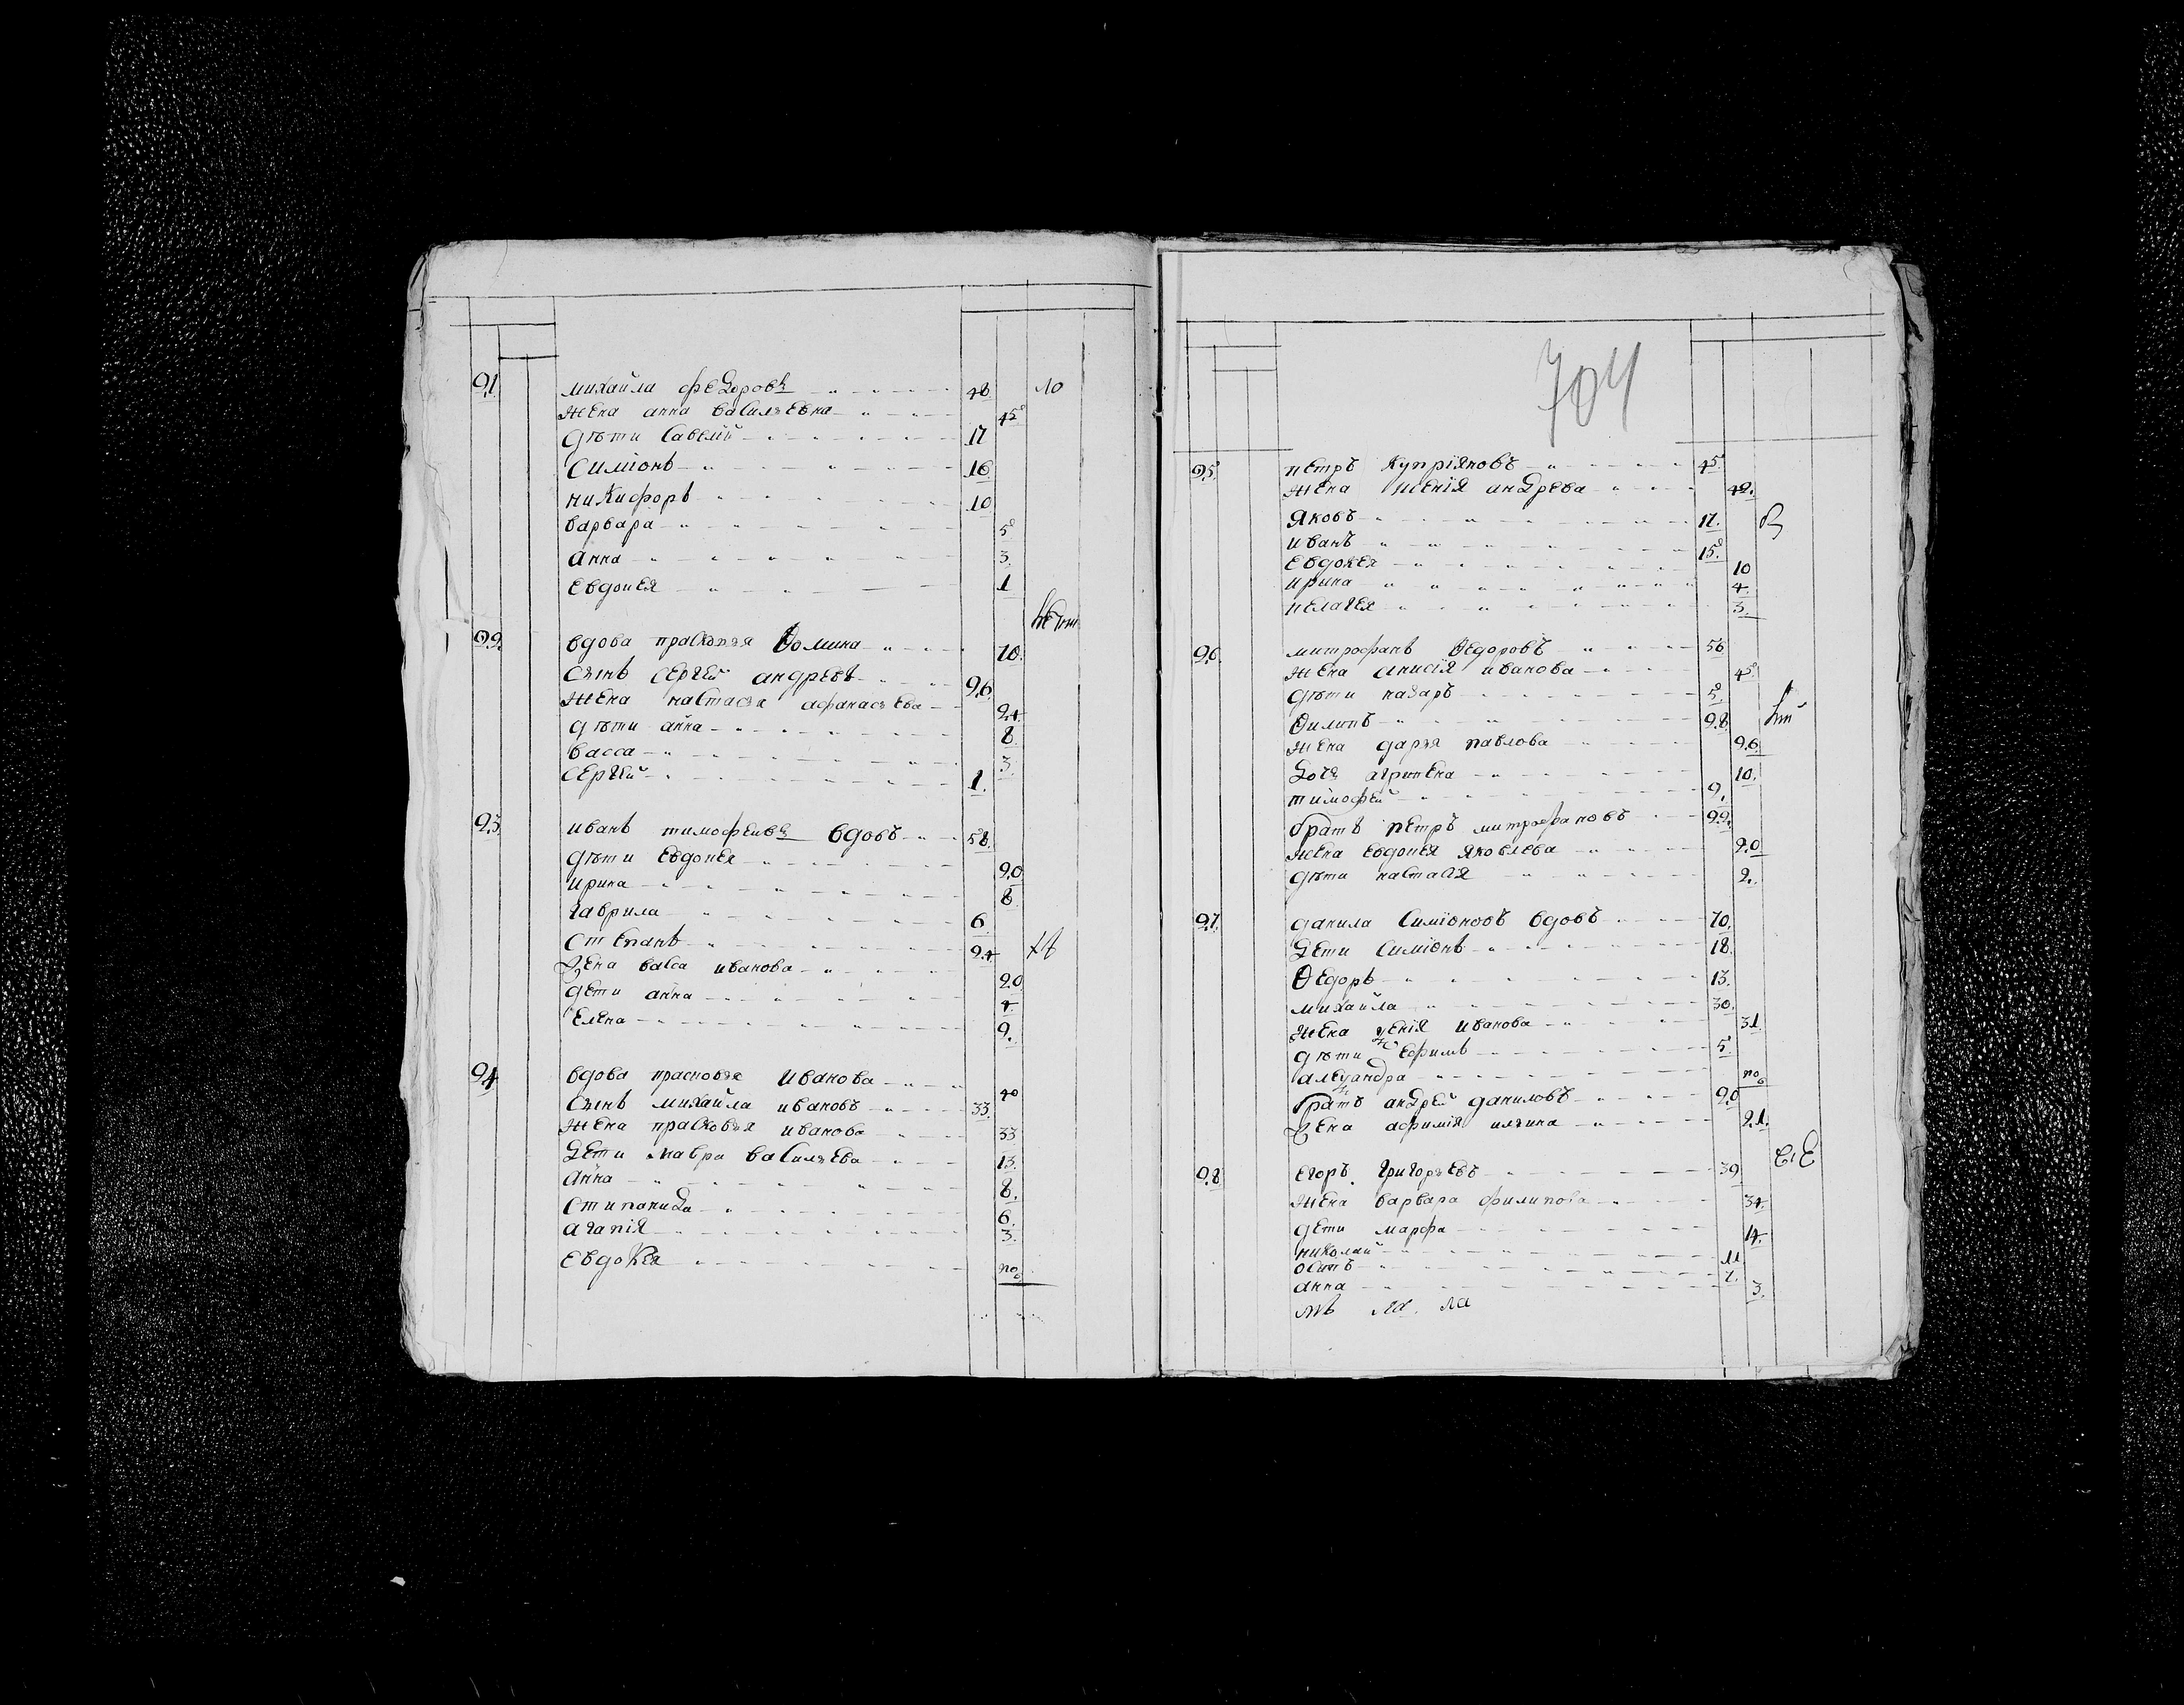 21 михайла федоровъ 48
жена анна василъевна 45
дѣти савелий 17
симионъ 16
никифоръ 10
варвара 5
анна 3
евдокея 1
22 вдова прасковъя Ѳомина 70
сынъ сергей андревъ 26
жена настасъя афанасъева 24
дѣти анна 8
васса 3
сергей 1
23 иванъ тимофеивъ вдовъ 58
дѣти евдокея 20
ирина 8
гаврила 6
степанъ 24
жена васса иванова 20
дети анна 4
елена 2
24 вдова прасковъя иванова 40
сынъ михайла ивановъ 33
жена прасковъя иванова 33
дети мавра василъева 13
анна 8
стипанида 6
агапія 3
евдокея
704
25 петръ купріяновъ 45
жена андрева 42
яковъ 17
иванъ 15
евдокея 10
ирина 4
пелагея 3
26 митрофанъ Ѳедоровъ 56
жена анисія иванова 45
дѣти назаръ 5
Ѳилипъ 28
жена даръя павлова 26
дочь агрипена 10
тимофей 2
братъ петръ митрофановъ 22
жена евдокея яковлева 20
дѣти настасія 2
27 данила симіоновъ вдовъ 70
дети симіонъ 18
Ѳедоръ 13
михайла 30
жена иванова 31
дѣти ефимъ 5
александра
братъ андрей даниловъ 20
жена афимія илъина 21
28 егоръ григоръевъ 39
жена варвара филипова 34
дети марфа 14
николай 11
осипъ 7
анна 3